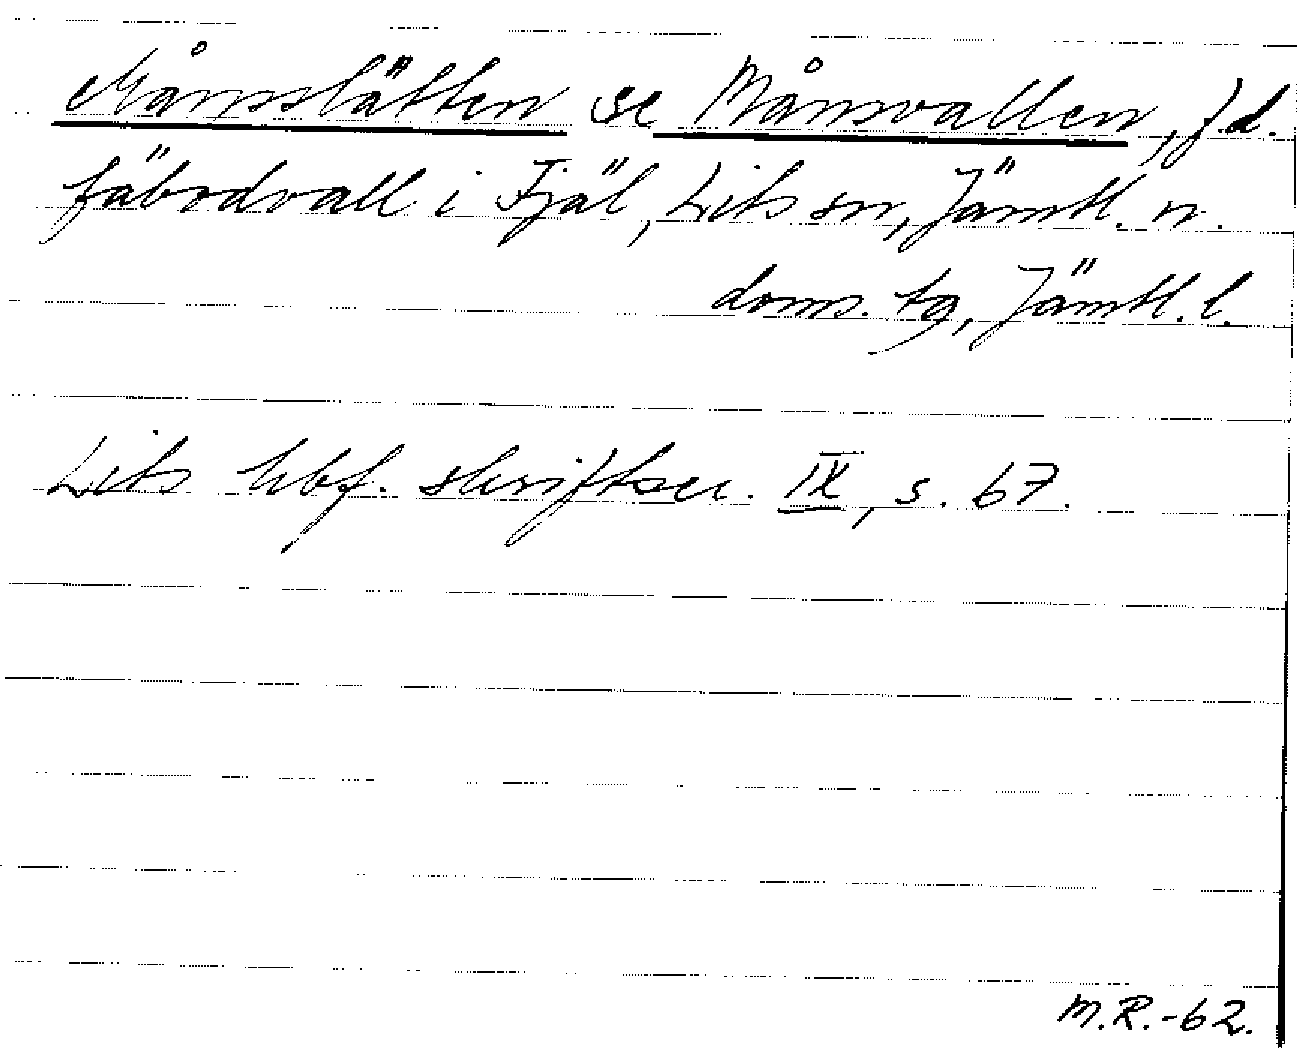 Månsslätten se Månsvallen, f.d.
fäbodvall i Fjäl, Lits sn, Jämtl. n.
doms. tg, Jämtl. l.
Lits hbf. skriftser. IX, s. 67.
M.R.-62.